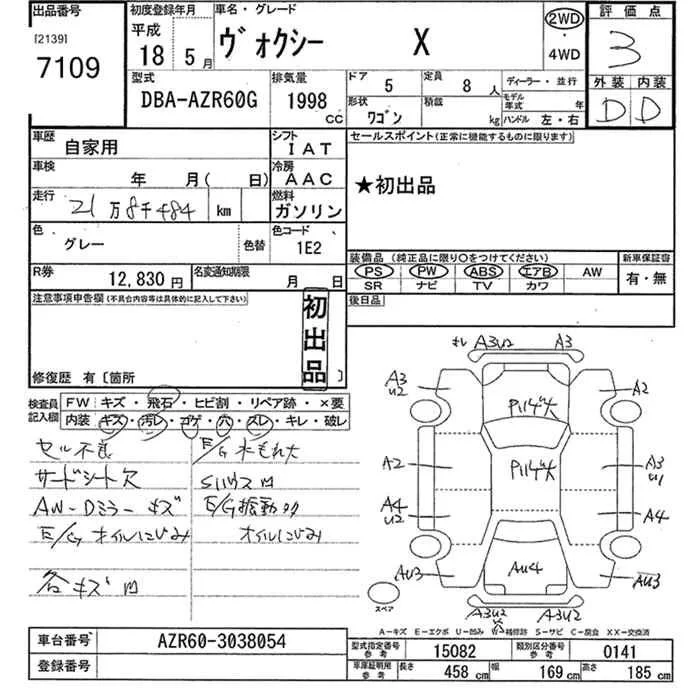 出品番号
[2139]
7109
初度登録年月
平成 18 5月
車名・グレード
ヴォクシー X
2WD
・
4WD
評価点
3
外装 内装
D D
型式
DBA-AZR60G
排気量
1998 CC
ドア 5
定員 8人
ディーラー・並行
形状 ワゴン
積載 kg
モデル年式 年
ハンドル 左・右
車歴 自家用
シフト IAT
車検 年 月( 日)
冷房 AAC
走行 21万8千484 km
燃料 ガソリン
色 グレー 色替
色コード 1E2
R券 12,830円
名変通知期限 月 日
セールスポイント(正常に機能するものに限ります)
★初出品
装備品 (純正品に限り○をつけてください)
PS PW ABS エアB AW
SR ナビ TV カワ
新車保証書
有・無
後日品
注意事項申告欄(不具合内容等は具体的に記入して下さい)
初出品
修復歴 有〔箇所 〕
検査員記入欄
FW キズ・飛石・ヒビ割・リペア跡・×要
内装 キズ・汚レ・コゲ・穴・スレ・キレ・破レ
セル不良
サードシート欠
AW-Dミラーキズ
E/Gオイルにじみ
各キズ凹
E/G水もれ大
E/G振動
オイルにじみ
キレ A3U2 A3
A3
U2
A2
A2
A3
U1
A4
U2
A4
AU3
AU4
AU3
A3U2 A3U2
スペア
A-キズ E-エクボ U-凹み W-補修跡 S-サビ C-腐食 XX-交換済
車台番号 AZR60-3038054
登録番号
型式指定番号参考 15082
類別区分番号参考 0141
車庫証明用参考 長さ 458cm 幅 169cm 高さ 185cm